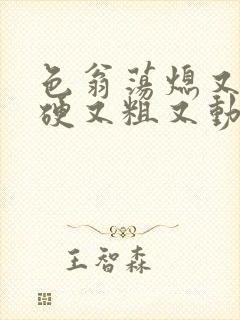 色翁荡熄又
硬又粗又動
王智森